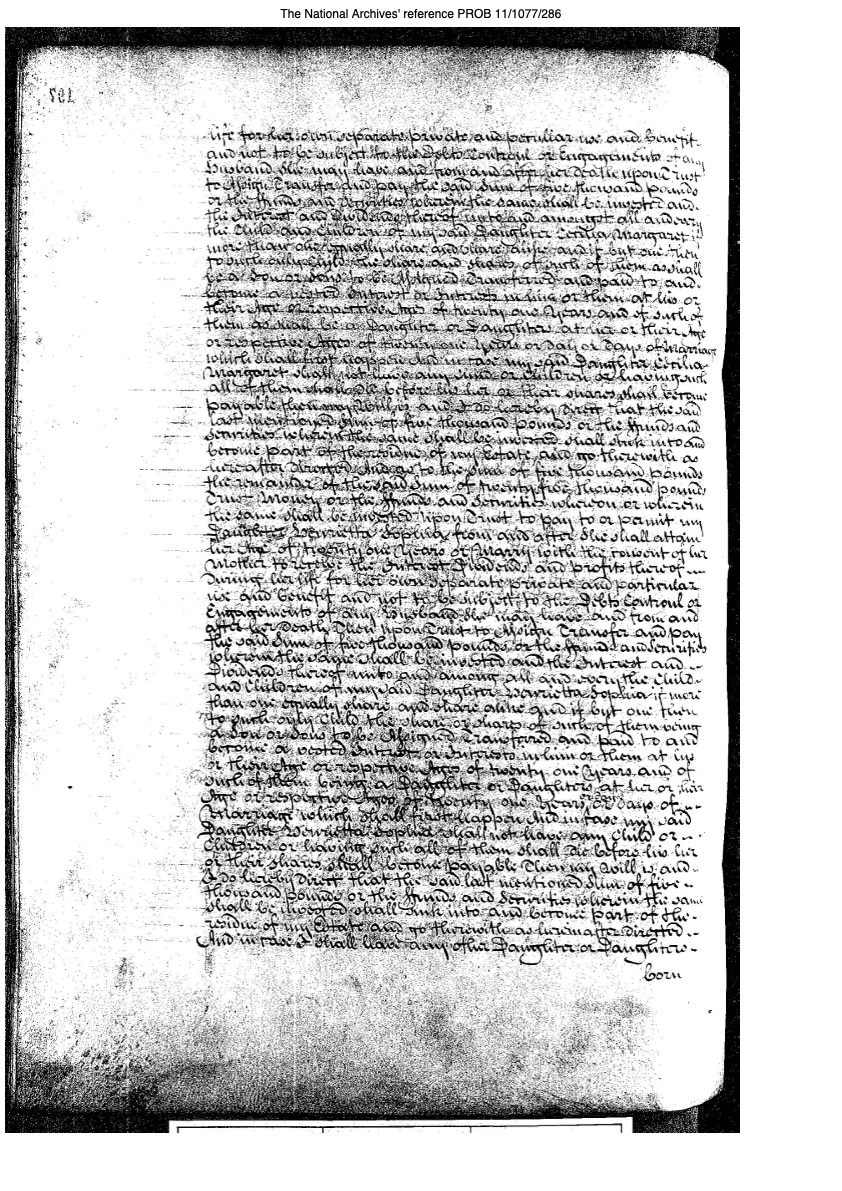 The National Archives' reference PROB 11/1077/286
life for her own separate private and peculiar use and benefit
and not to be subject to the Debts Controul or Engagements of any
Husband she may have and from and after her death upon Trust
to Assign Transfer and pay the said Sum of five thousand pounds
or the ffunds and Securities wherein the same shall be invested and
the Interest and Dividends thereof unto and amongst all and every
the Child and Children of my said Daughter Cecilia Margaret if
more than one equally share and share alike and if but one then
to such only Child the share and shares of such of them as shall
be a Son or Sons to be Assigned Transferred and paid to and
become a vested Interest or Interests in him or them at his or
their Age or respective Ages of twenty one Years and of such of
them as shall be a Daughter or Daughters at her or their Age
or respective Ages of twenty one Years or day or days of Marriage
which shall first happen And in case my said Daughter Cecilia
Margaret shall not have any Child or Children or having such
all of them shall die before his her or their shares shall become
payable then my Will is and I do hereby direct that the said
last mentioned Sum of five thousand pounds or the ffunds and
Securities wherein the same shall be invested shall sink into and
become part of the residue of my Estate and go therewith as
herein after directed And as to the Sum of five thousand pounds
the remainder of the said Sum of twenty five thousand pounds
Trust Money or the ffunds and Securities whereon or wherein
the same shall be invested upon Trust to pay to or permit my
Daughter Henrietta Sophia from and after she shall attain
her Age of twenty one Years or Marry with the consent of her
Mother to receive the Interest Dividends and profits thereof
During her life for her own separate private and particular
use and benefit and not to be subject to the Debts Controul or
Engagements of any Husband she may have and from and
after her Death Then upon Trust to Assign Transfer and pay
the said Sum of five thousand pounds or the ffunds and Securities
wherein the same shall be invested and the Interest and
Dividends thereof unto and among all and every the Child
and Children of my said Daughter Henrietta Sophia if more
than one equally share and share alike and if but one then
to such only Child the share or shares of such of them being
a Son or Sons to be Assigned Transferred and paid to and
become a vested Interest or Interests in him or them at his
or their Age or respective Ages of twenty one Years and of
such of them being a Daughter or Daughters at her or their
Age or respective Ages of twenty one Years or days of
Marriage which shall first happen And in case my said
Daughter Henrietta Sophia shall not have any Child or
Children or having such all of them shall die before his her
or their shares shall become payable Then my Will is and
I do hereby Direct that the said last mentioned Sum of five
thousand pounds or the ffunds and Securities wherein the same
shall be invested shall sink into and become part of the
residue of my Estate and go therewith as hereinafter directed
And in case I shall leave any other Daughter or Daughters
born